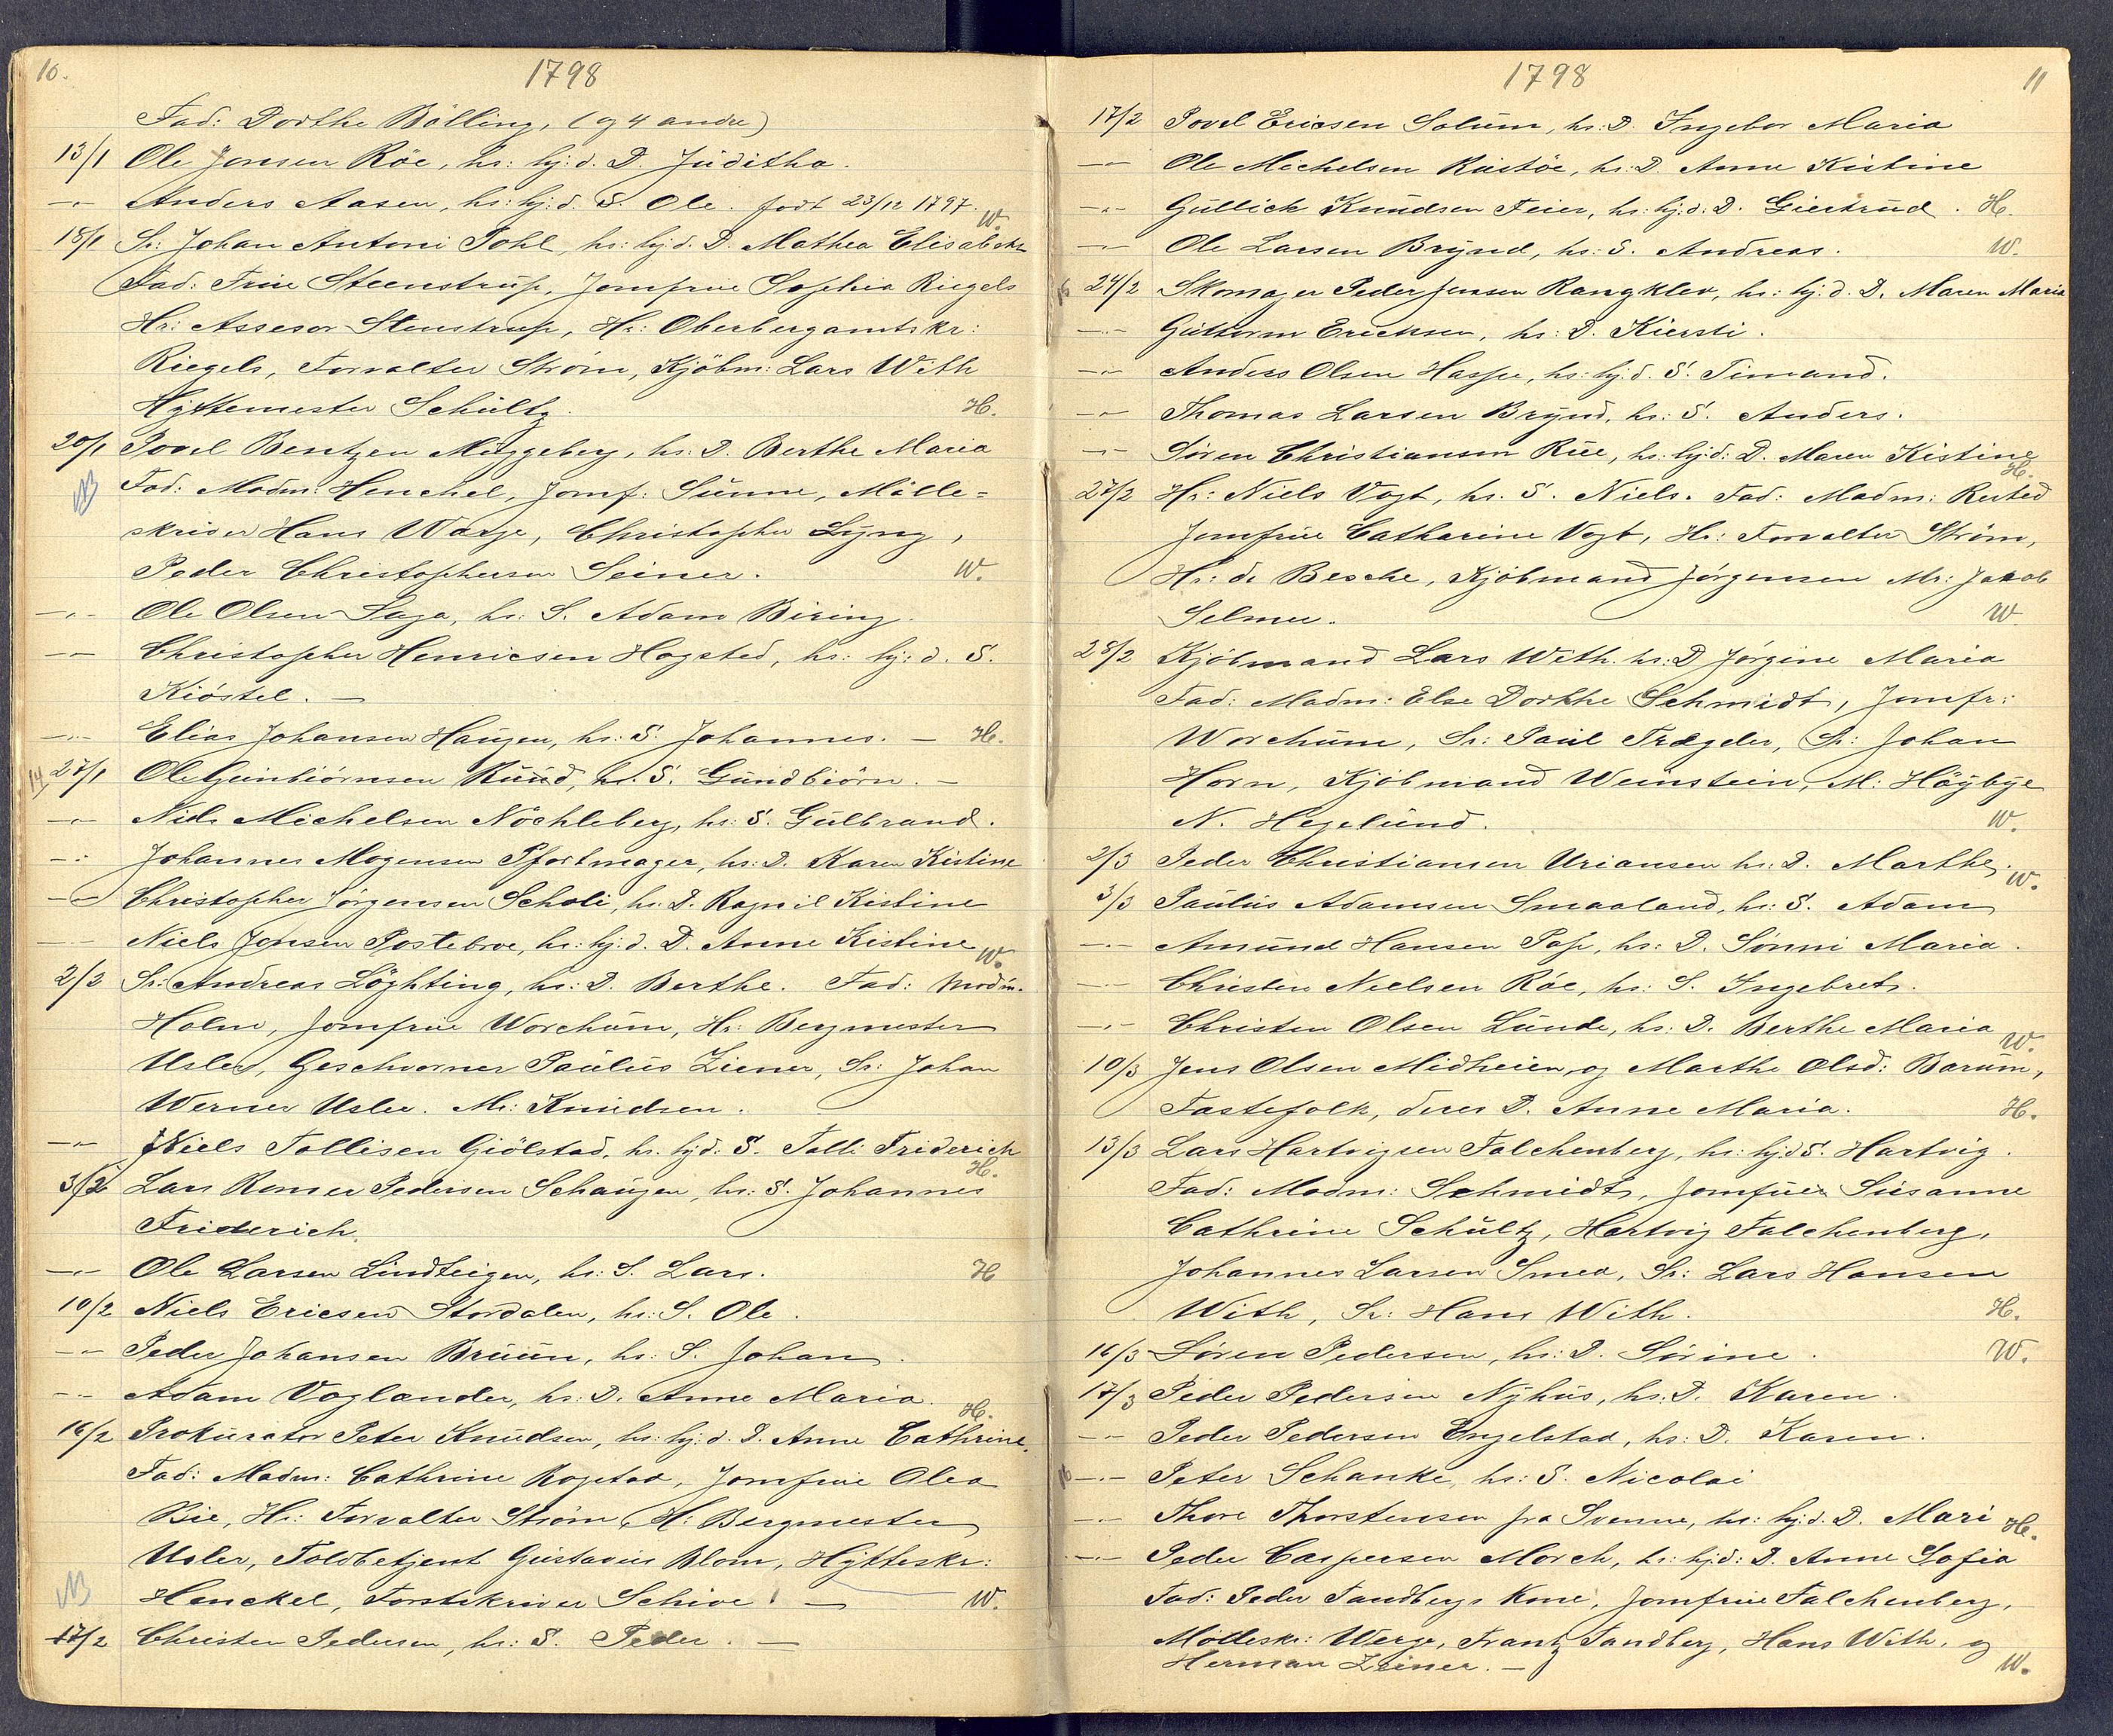 10.
1798
Fad: Dorthe Bölling, (og 4 andre)
13/1 Ole Jonsen Röe, hs: hj: d. D. Juditha.
-"- Anders Aasen, hs: hj: d. S. Ole. født 23/12 1797. W.
18/1 Sr: Johan Antoni Pohl, hs: hj: d. D. Mathea Elisabeth
Fad: Frue Steenstrup, Jomfrue Sophia Riegels
Hr: Assesor Stenstrup, Hr: Oberbergamtskr:
Riegels, Forvalter Strøm, Kjöbm: Lars With
Hyttemester Schultz. H.
20/1 Povel Bentzen Muggeberg, hs: D. Berthe Maria
Fad: Madm: Henchel, Jomf: Sunne, Mölle=
skriver Hans Warge, Christopher Lyng,
Peder Christophersen Seiner. W.
-"- Ole Olsen Saga, hs: S. Adam Biring.
-"- Christopher Henricsen Hogsted, hs: hj: d. S.
Kióstel. —
-"- Elias Johansen Haugen, hs: S. Johannes. — H.
27/1 Ole Gunbiörnsen Ruud, hs. S. Gundbiörn. —
-"- Niels Michelsen Nöchleberg, hs: S. Gulbrand.
-"- Johannes Mogensen Pfortmager, hs: D. Karen Kistine
-"- Christopher Jörgensen Schole, hs. D. Ragnil Kistine
-"- Niels Jensen Postebroe, hs: hj: d. D. Anne Kistine W.
2/2 Sr: Andreas Löghting, hs: D. Berthe. Fad: Madm.
Holm, Jomfrue Worchum, Hr: Bergmester
Usler, Geschworner Paulus Ziener, Sr: Johan
Werner Usler. Mr: Knudsen.
-"- Niels Tollisen Giölstad, hs. hj: d: S. Tolli Friderich H.
3/2 Lars Romer Pedersen Schaugen, hs: S. Johannes
Friderich.
-"- Ole Larsen Lindteigen, hs: S. Lars. H
10/2 Niels Ericsen Stordalen, hs: S. Ole.
-"- Peder Johansen Bruun, hs: S. Johan.
-"- Adam Voglander, hs: D. Anne Maria. H.
16/2 Prokurator Peter Knudsen, hs: hj: d. D. Anne Cathrine.
Fad: Madm: Cathrine Rogstad, Jomfrue Olea
Bie, Hr: Forvalter Strøm, H: Bergmester
Usler, Toldbetjent Gustavus Blom, Hytteskr:
Henckel, Forstskriver Schive. — W.
17/2 Christen Pedersen, hs: S. Peder. —
1798
11
17/2 Povel Ericsen Solum, hs: D. Ingebor Maria
-"- Ole Michelsen Rustöe, hs: D. Anne Kistine
-"- Gullich Knudsen Feier, hs: hj: d: D. Giertrud. H.
-"- Ole Larsen Brynd, hs: S. Andreas. W.
24/2 Skomager Peder Jensen Rangklev, hs: hj: d. D. Maren Maria
-"- Guttorm Ericksen, hs: D. Kiersti.
-"- Anders Olsen Haspe, hs: hj: d. S. Timand.
-"- Thomas Larsen Brynd, hs: S. Anders.
-"- Søren Christiansen Rue, hs: hj: d: D. Maren Kistine H.
27/2 Hr: Niels Vogt, hs. S. Niels. Fad: Madm: Rested
Jomfrue Catharine Vogt, Hr: Forvalter Strøm,
Hr: de Besche, Kjöbmand Jörgensen Mr: Jakob
Selmer. W.
28/2 Kjöbmand Lars With. hs: D Jörgine Maria
Fad: Madm: Else Dorthe Schmidt, Jomfr:
Worchum, Sr: Paul Trægder, Sr: Johan
Horn, Kjöbmand Weinstein, M: Höybye
N. Hegelund. W.
2/3 Peder Christiansen Uriansen hs: D. Marthe. W.
3/3 Paulus Adamsen Smaaland, hs: S. Adam
-"- Amund Hansen Pap, hs: D. Sønni Maria.
-"- Christen Nielsen Röe, hs: S. Ingebret.
-"- Christen Olsen Lunde, hs: D. Berthe Maria W.
10/3 Jens Olsen Midheien, og Marthe Olsd: Barum,
Fastefolk, deres D. Anne Maria. H.
13/3 Lars Hartvigsen Falchenberg, hs: hj: d S. Hartvig.
Fad: Madm: Schmidt, Jomfrue Susanne
Cathrine Schultz, Hartvig Falchenberg,
Johannes Larsen Smed, Sr: Lars Hansen
With, Sr: Hans With. H.
16/3 Søren Pedersen, hs: D. Sørine. W.
17/3 Peder Pedersen Nyhus, hs: D. Karen.
-"- Peder Pedersen Engelstad, hs: D. Karen.
-"- Peter Schanke, hs: S. Nicolai
-"- Thore Thorstensen fra Svenne, hs: hj: d. D. Mari H.
-"- Peder Caspersen Morch, hs: hj: d: D. Anne Sofia
Fad: Peder Tandbergs Kone, Jomfrue Falchenberg,
Mölleskr: Werge, Frantz Tandberg, Hans With. og
Herman Zeiner. — W.